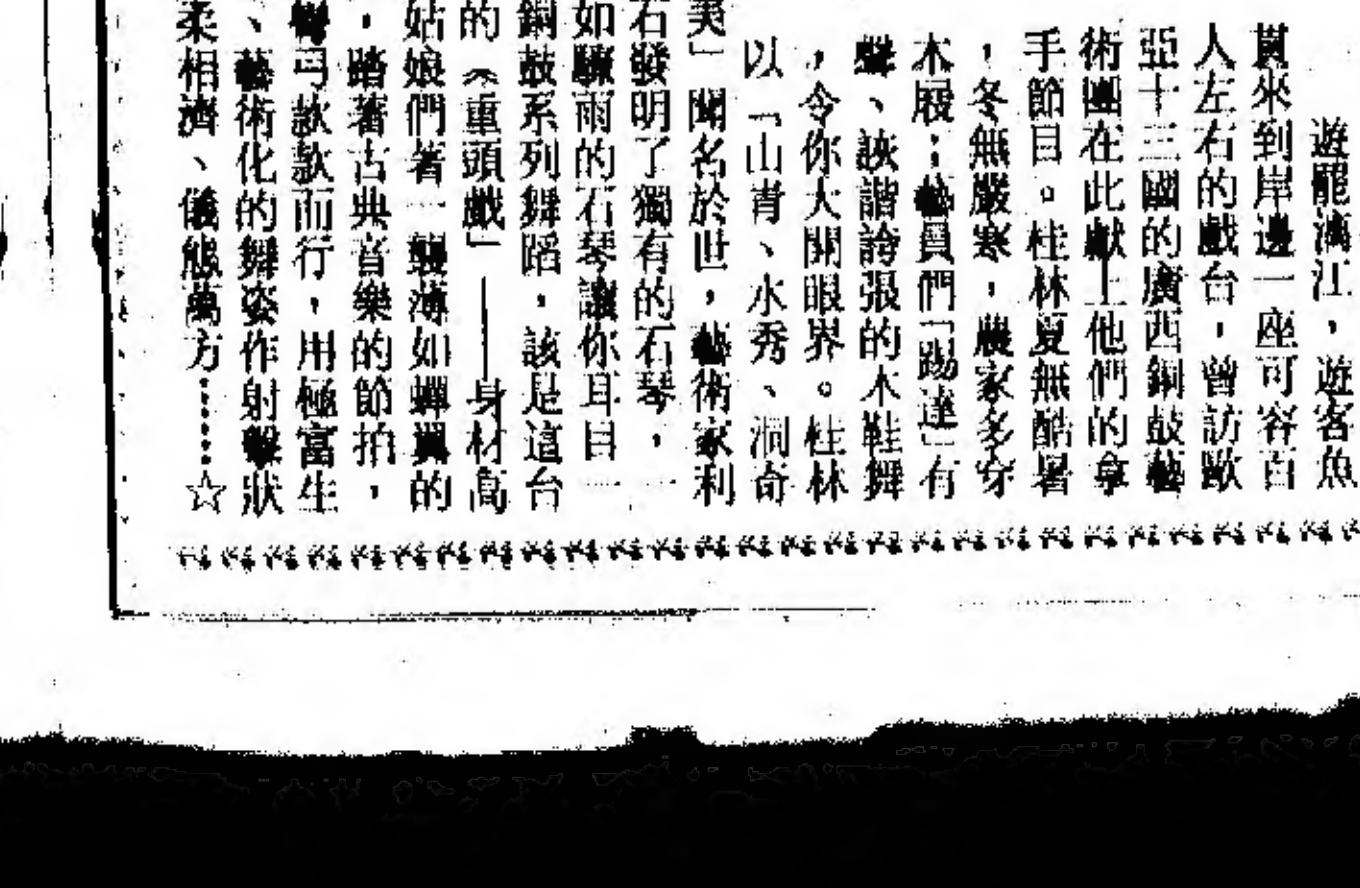 遊罷漓江，遊客魚
貫來到岸邊一座可容百
人左右的戲台，曾訪歐
亞十三國的廣西銅鼓藝
術團在此獻上他們的拿
手節目。桂林夏無酷暑
，冬無嚴寒，農家多穿
木屐；藝員們「踢達」有
聲、詼諧誇張的木鞋舞
，令你大開眼界。桂林
以「山青、水秀、洞奇
美」聞名於世，藝術家利
石發明了獨有的石琴，
如驟雨的石琴讓你耳目一
銅鼓系列舞蹈，該是這台
的《重頭戲」——身材高
姑娘們著一襲薄如蟬翼的
，踏著古典音樂的節拍，
彎弓款款而行，用極富生
、藝術化的舞姿作射擊狀
柔相濟、儀態萬方……☆